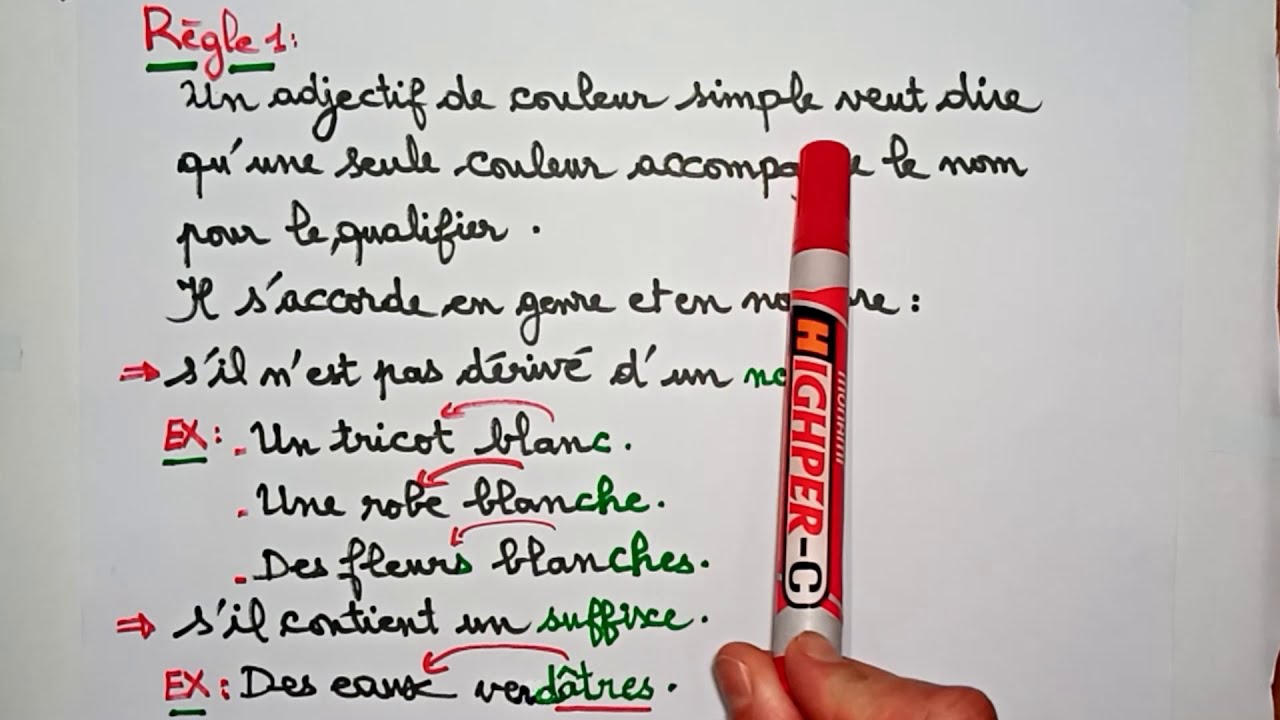 Règle 1:
Un adjectif de couleur simple veut dire
qu'une seule couleur le nom
pour le qualifier.
Il s'accorde en genre et en :
⇒ s'il n'est pas dérivé d'un
EX: . Un tricot blanc.
. Une robe blanche.
. Des fleurs blanches.
⇒ s'il contient un suffixe.
EX: Des eaux verdâtres.
HIGHPER-C